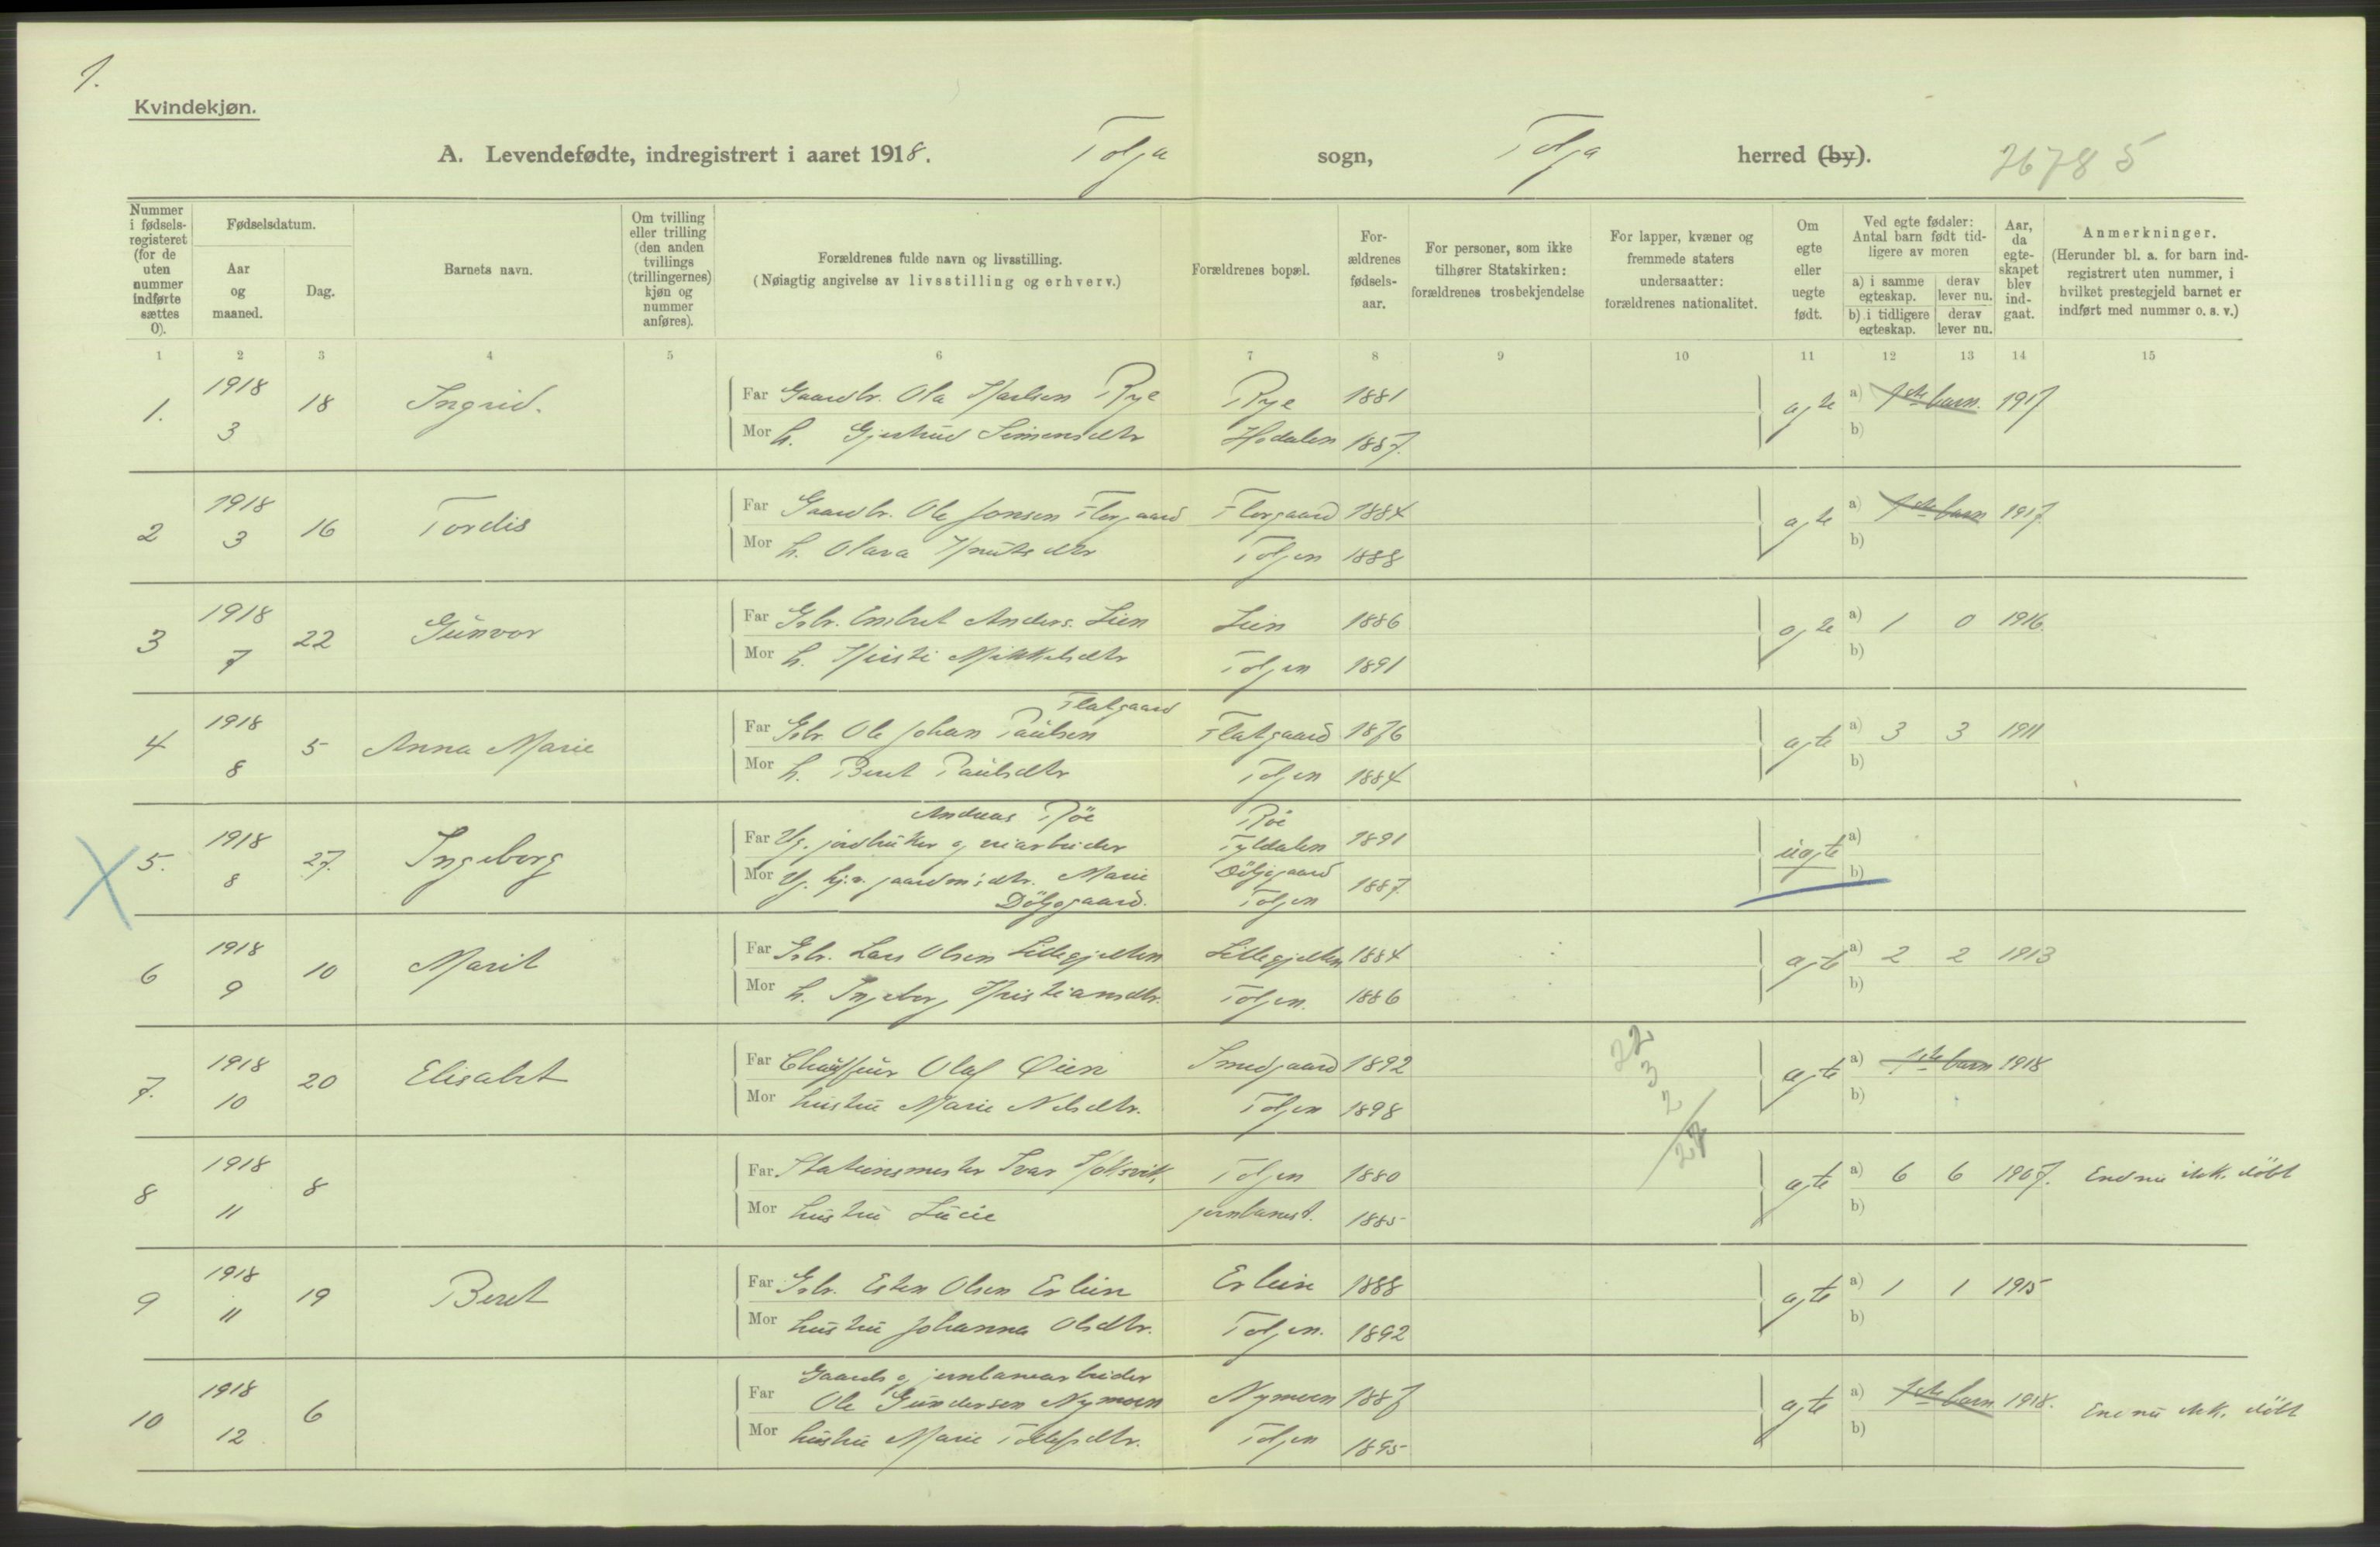 1.
Kvindekjøn.
A. Levendefødte, indregistrert i aaret 1918. Tolga sogn, Tolga herred (by). 26785
Nummer i fødsels-registeret (for de uten nummer indførte sættes 0).
Fødselsdatum.
Aar og maaned.
Dag.
Barnets navn.
Om tvilling eller trilling (den anden tvillings (trillingernes) kjøn og nummer anføres).
Forældrenes fulde navn og livsstilling.
(Nøiagtig angivelse av livsstilling og erhverv.)
Forældrenes bopæl.
For-ældrenes fødsels-aar.
For personer, som ikke tilhører Statskirken: forældrenes trosbekjendelse
For lapper, kvæner og fremmede staters undersaatter: forældrenes nationalitet.
Om egte eller uegte født.
Ved egte fødsler: Antal barn født tid-ligere av moren
a) i samme egteskap. derav lever nu.
b) i tidligere egteskap. derav lever nu.
Aar, da egte-skapet blev ind-gaat.
Anmerkninger.
(Herunder bl. a. for barn ind-registrert uten nummer, i hvilket prestegjeld barnet er indført med nummer o. s. v.)
1 2 3 4 5 6 7 8 9 10 11 12 13 14 15
1. 1918 3 18 Ingrid. Far Gaardbr. Ola Rye Rye 1881 egte a) 1ste barn. 1917
Mor h. Gjertrud Simensdtr Hodalen 1887. b)
2 1918 3 16 Tordis Far Gaardbr. Ole Jonsen Florgaard Florgaard 1884 egte a) 1ste barn 1917
Mor h. Olava Knutsdtr Tolgen 1888 b)
3 1918 7 22 Gunvor Far Gbr. Embret Anders. Lien Lien 1886 egte a) 1 0 1916.
Mor h. Kristi Mikkelsdtr Tolgen 1891 b)
4 1918 8 5 Anna Marie Far Gbr. Ole Johan Paulsen Flatgaard Flatgaard 1876 egte a) 3 3 1911
Mor h. Beret Paulsdtr Tolgen 1884 b)
5. 1918 8 27. Ingeborg Far Ug. jordbruker og Andreas Röe Röe Tyldalen 1891 uegte a)
Mor Ug. hj.v. gaardm's dtr. Marie Döljogaard. Döljogaard Tolgen 1887. b)
6 1918 9 10 Marit Far Gbr. Lars Olsen Lillegjelten Lillegjelten 1884 egte a) 2 2 1913
Mor h. Ingeborg Kristiansdtr. Tolgen. 1886 b)
22
3
2
27
7. 1918 10 20 Elisabet Far Chauffeur Olaf Øien Smedgaard 1892 egte a) 1ste barn 1918
Mor hustru Marie Nilsdtr. Tolgen 1898 b)
8 1918 11 8 Far Stationsmester Ivar Tolgen 1880 egte a) 6 6 1907. Endnu ikke döbt
Mor hustru Lucie jernbanest. 1885 b)
9 1918 11 19 Beret Far Gbr. Esten Olsen Erlien Erlien 1888 egte a) 1 1 1915
Mor hustru Johanna Olsdtr. Tolgen. 1892 b)
10 1918 12 6 Far Gaards og jernbanearbeider Ole Gundersen Nymoen Nymoen 1887 egte a) 1ste barn 1918. Endnu ikke döbt
Mor hustru Marie Tollefsdtr. Tolgen 1895 b)